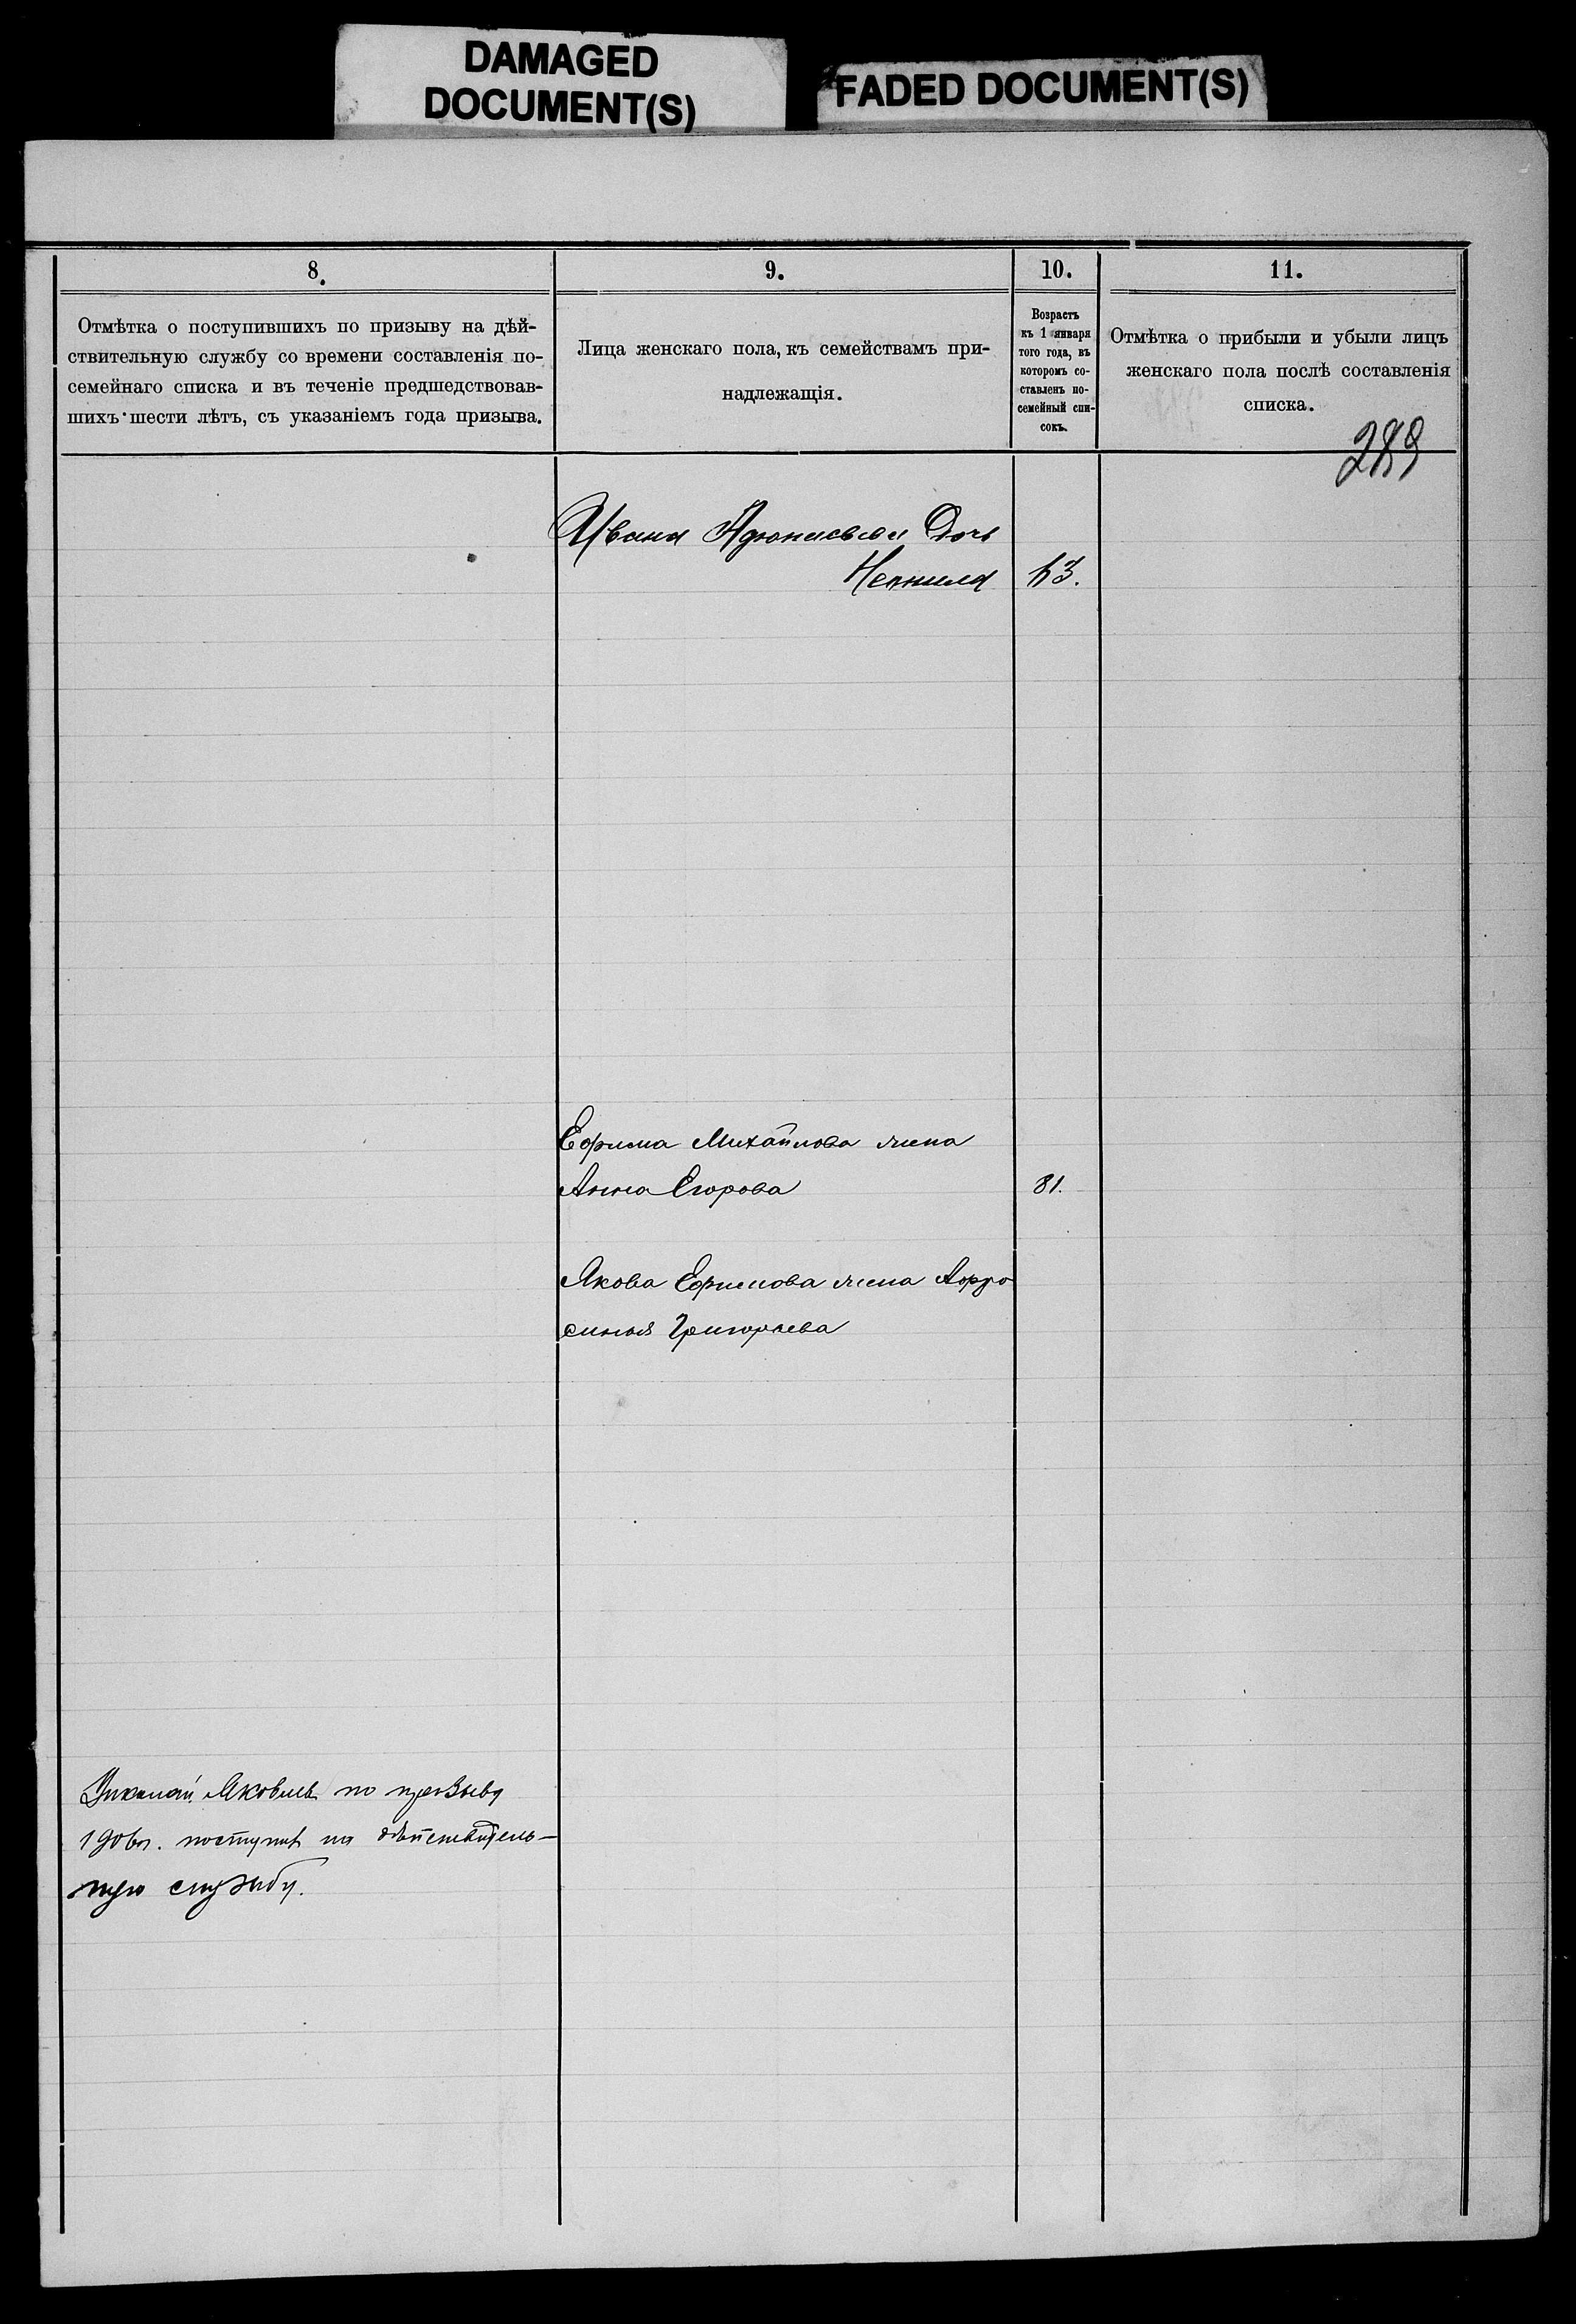 DAMAGED
DOCUMENT(S)
FADED DOCUMENT(S)
8.
Отмѣтка о поступившихъ по призыву на дѣй-
ствительную службу со времени составленія по-
семейнаго списка и въ теченіе предшедствовав-
шихъ шести лѣтъ, съ указаніемъ года призыва.
9.
Лица женскаго пола, къ семействамъ при-
надлежащія.
10.
Возрастъ
къ 1 января
того года, въ
которомъ со-
ставленъ по-
семейный спи-
сокъ.
11.
Отмѣтка о прибыли и убыли лицъ
женскаго пола послѣ составленія
списка.
289
Ивана Афонасьева Дочь
Неонила
Ефима Михайлова жена
Анна Егорова 81.
Якова Ефимова жена Афро
синья Григорьева
Николай Яковлев по призыву
поступил на дѣйствитель-
ную службу.